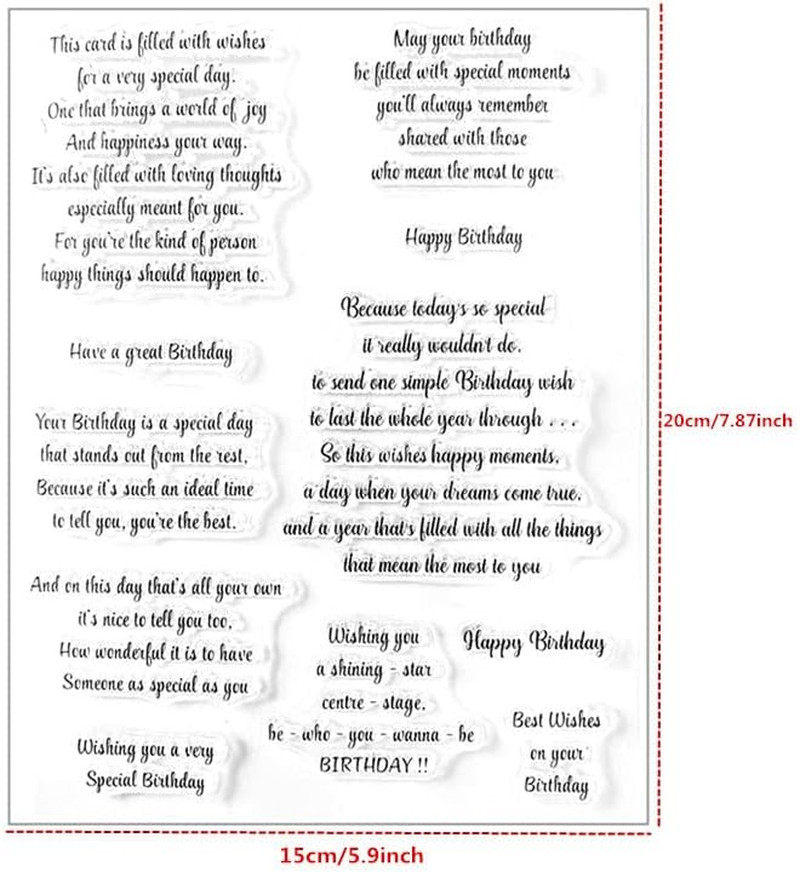 This card is filled with wishes
for a very special day.
One that brings a world of joy
And happiness your way.
It's also filled with loving thoughts
especially meant for you.
For you're the kind of person
happy things should happen to.
Have a great Birthday
Your Birthday is a special day
that stands out from the rest,
Because it's such an ideal time
to tell you, you're the best.
And on this day that's all your own
it's nice to tell you too,
How wonderful it is to have
Someone as special as you
Wishing you a very
Special Birthday
May your birthday
be filled with special moments
you'll always remember
shared with those
who mean the most to you
Happy Birthday
Because today's so special
it really wouldn't do.
to send one simple Birthday wish
to last the whole year through . . .
So this wishes happy moments,
a day when your dreams come true.
and a year that's filled with all the things
that mean the most to you
Wishing you
a shining - star
centre - stage,
be - who - you - wanna - be
BIRTHDAY !!
Happy Birthday
Best Wishes
on your
Birthday
20cm/7.87inch
15cm/5.9inch